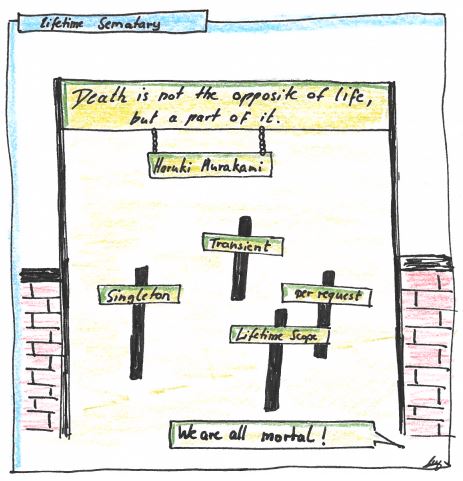 Lifetime Sematary
Death is not the opposite of life,
but a part of it.
Haruki Murakami
Transient
Singleton
per request
Lifetime Scope
We are all mortal!